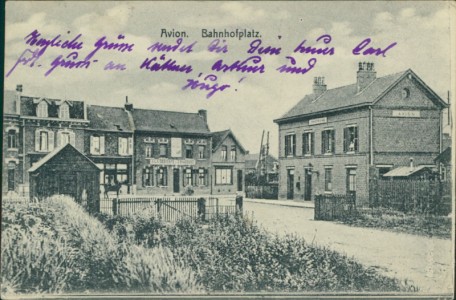 Avion. Bahnhofplatz.
Herzliche Grüße sendet Dir Dein treuer Carl
Gruß an Arthur und
Hugo!
AVION